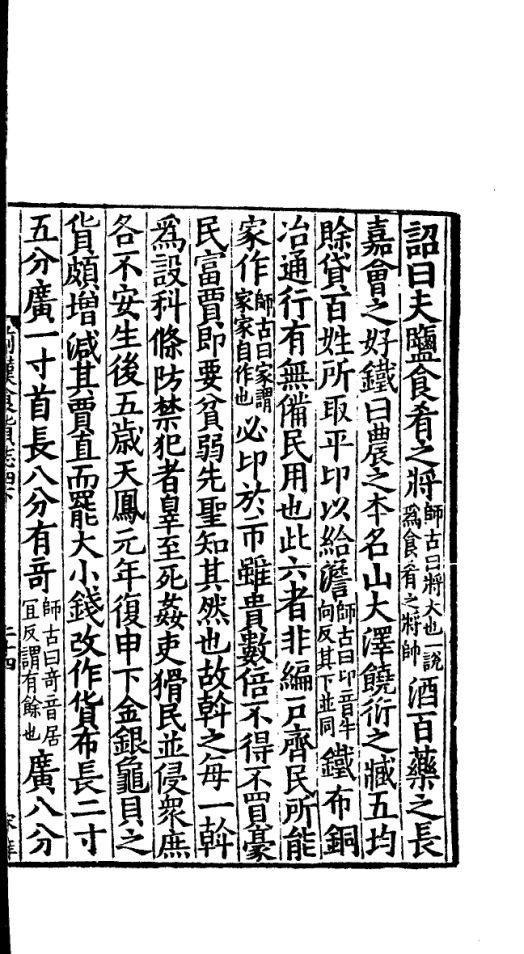 詔曰夫鹽食肴之將師古曰將大也一說爲食肴之將帥酒百藥之長
嘉會之好鐵曰農之本名山大澤饒衍之臧五均
賒貸百姓所取平卬以給澹師古曰卬音牛向反其下並同鐵布銅
冶通行有無備民用也此六者非編戶齊民所能
家作師古曰家謂家家自作也必卬於市雖貴數倍不得不買豪
民富賈即要貧弱先聖知其然也故斡之每一斡
爲設科條防禁犯者辠至死姦吏猾民並侵衆庶
各不安生後五歲天鳳元年復申下金銀龜貝之
貨頗增減其賈直而罷大小錢改作貨布長二寸
五分廣一寸首長八分有奇師古曰奇音居宜反謂有餘也廣八分